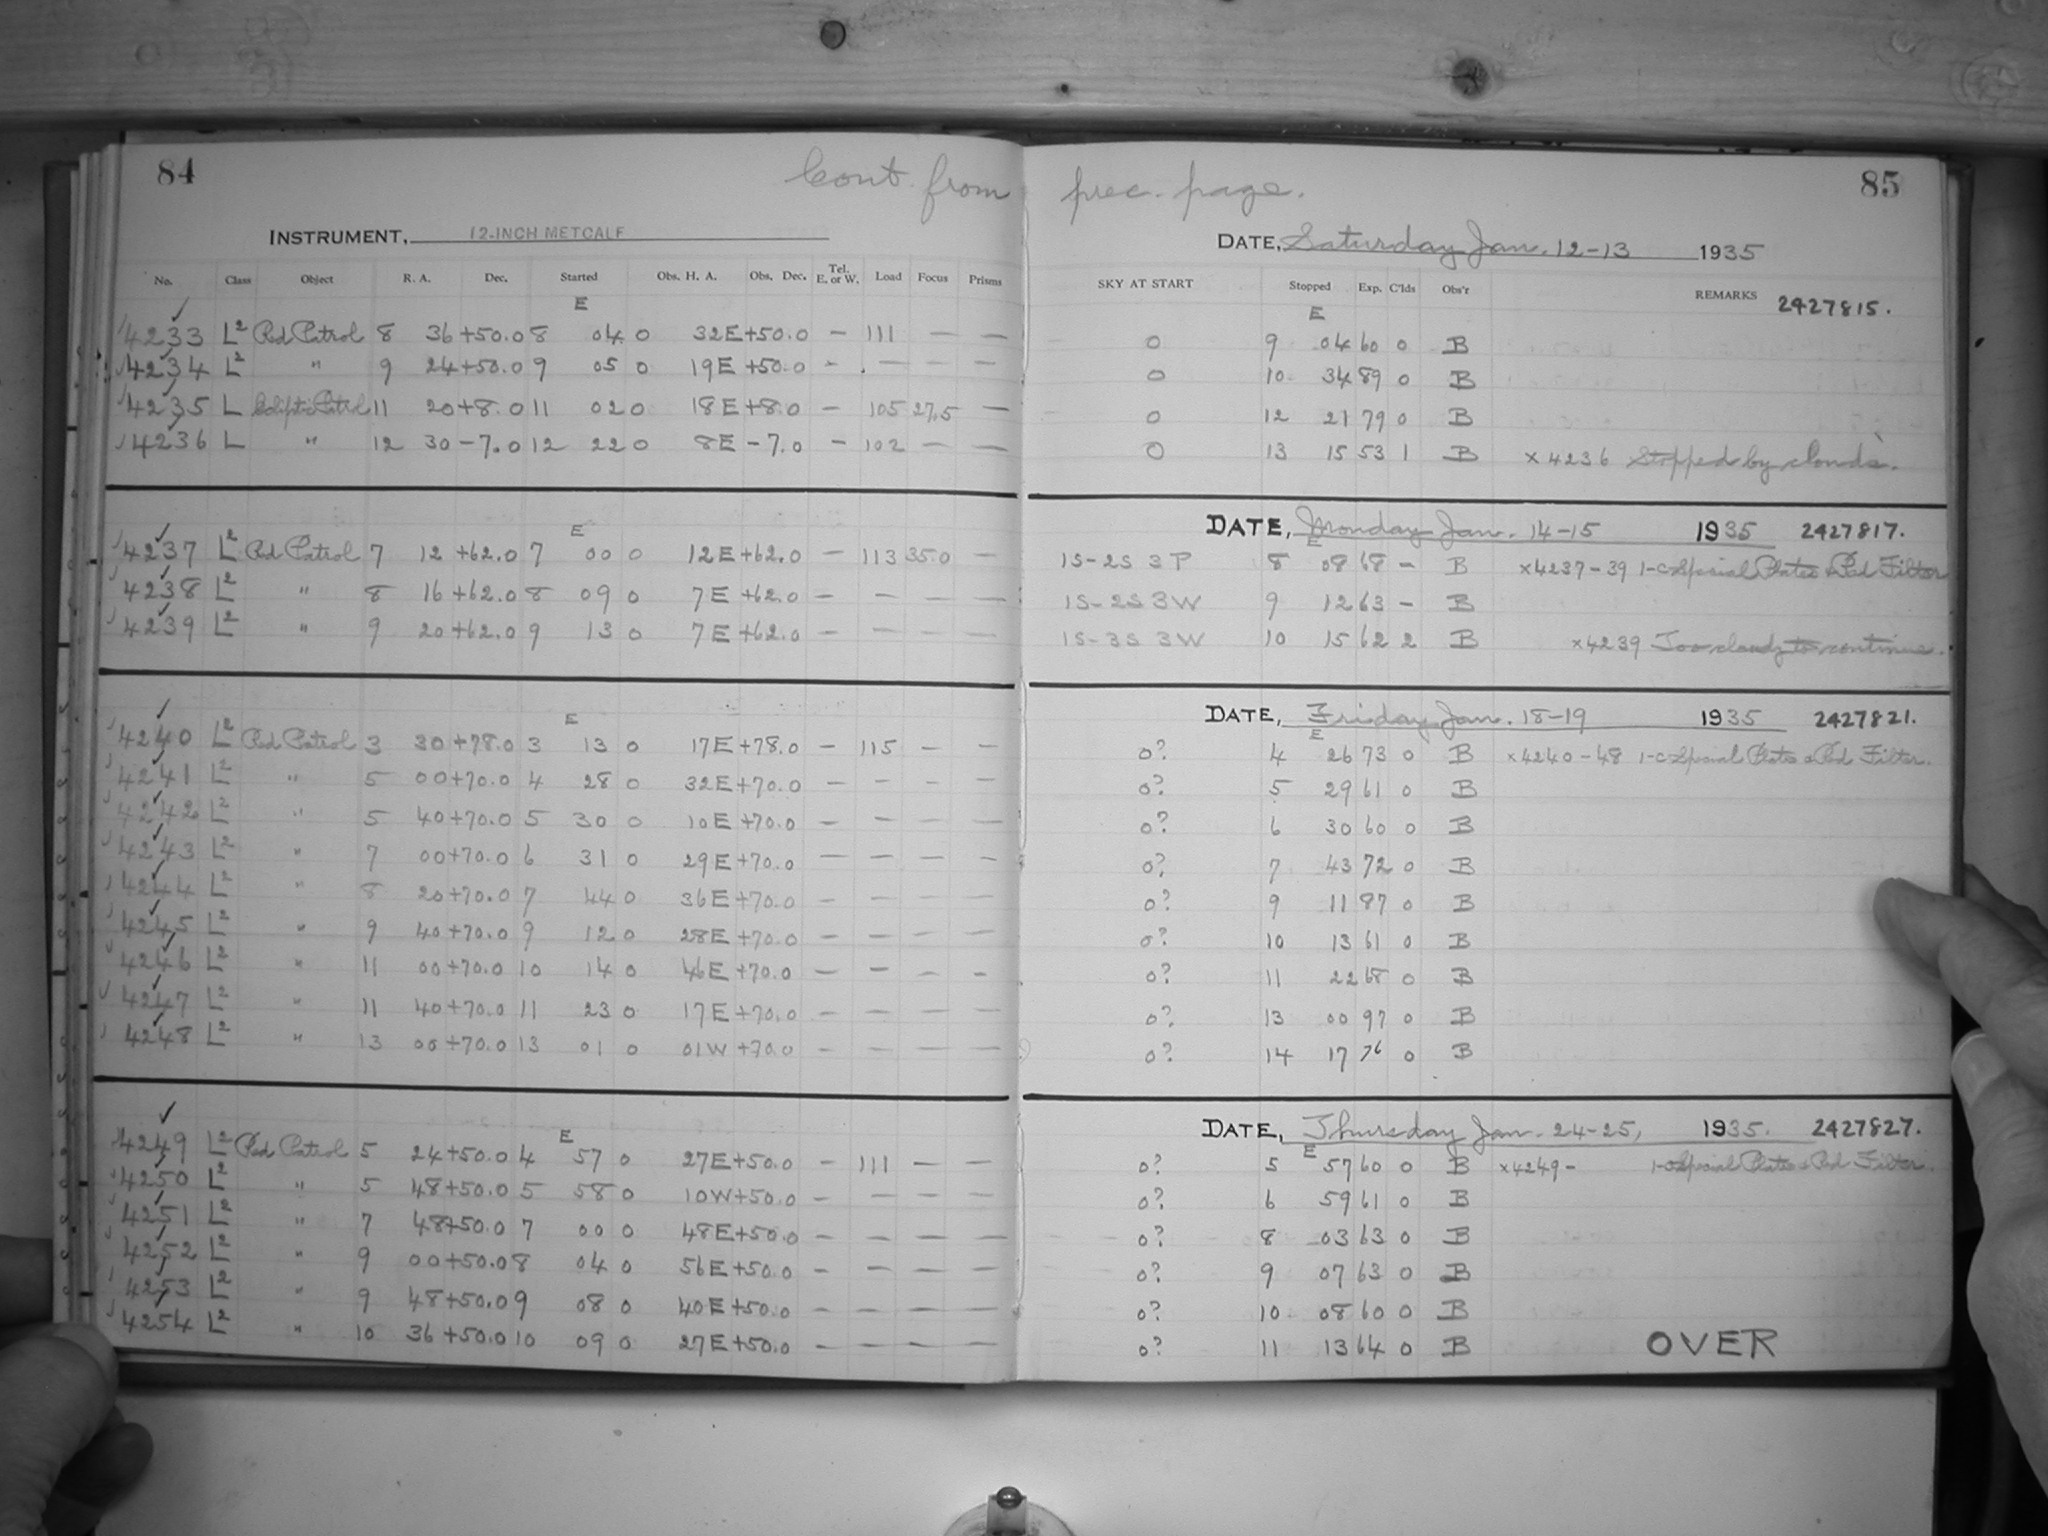 84
Cont. from prec. page.
85
INSTRUMENT, 12-INCH METCALF
DATE, Saturday Jan. 12-13 1935
No. Class Object R. A. Dec. Started Obs. H. A. Obs. Dec. Tel. E. or W. Load Focus Prisms SKY AT START Stopped Exp. C'lds Obs'r REMARKS 2427815.
E E
4233 L2 Red Patrol 8 36 +50.0 8 04 0 32E +50.0 — 111 — — 0 9 04 60 0 B
4234 L2 " 9 24 +50.0 9 05 0 19E +50.0 - . — — — 0 10 34 89 0 B
4235 L Ecliptic Patrol 11 20 +8.0 11 02 0 18E +8.0 — 105 27.5 — 0 12 21 79 0 B
4236 L " 12 30 -7.0 12 22 0 8E -7.0 — 102 — — 0 13 15 53 1 B x4236 Stopped by clouds.
DATE, Monday Jan. 14-15 1935 2427817.
E E
4237 L2 Red Patrol 7 12 +62.0 7 00 0 12E +62.0 — 113 35.0 — 1S-2S 3P 8 08 68 — B x4237-39 1-C Special Plates & Red Filter
4238 L2 " 8 16 +62.0 8 09 0 7E +62.0 — — — — 1S-2S 3W 9 12 63 — B
4239 L2 " 9 20 +62.0 9 13 0 7E +62.0 — — — — 1S-3S 3W 10 15 62 2 B x4239 Too cloudy to continue.
DATE, Friday Jan. 18-19 1935 2427821.
E E
4240 L2 Red Patrol 3 30 +78.0 3 13 0 17E +78.0 — 115 — — 0? 4 26 73 0 B x4240-48 1-C Special Plates & Red Filter.
4241 L2 " 5 00 +70.0 4 28 0 32E +70.0 — — — — 0? 5 29 61 0 B
4242 L2 " 5 40 +70.0 5 30 0 10E +70.0 — — — — 0? 6 30 60 0 B
4243 L2 " 7 00 +70.0 6 31 0 29E +70.0 — — — — 0? 7 43 72 0 B
4244 L2 " 8 20 +70.0 7 44 0 36E +70.0 — — — — 0? 9 11 87 0 B
4245 L2 " 9 40 +70.0 9 12 0 28E +70.0 — — — — 0? 10 13 61 0 B
4246 L2 " 11 00 +70.0 10 14 0 46E +70.0 — — — — 0? 11 22 68 0 B
4247 L2 " 11 40 +70.0 11 23 0 17E +70.0 — — — — 0? 13 00 97 0 B
4248 L2 " 13 00 +70.0 13 01 0 01W +70.0 — — — — 0? 14 17 76 0 B
DATE, Thursday Jan. 24-25, 1935. 2427827.
E E
4249 L2 Red Patrol 5 24 +50.0 4 57 0 27E +50.0 — 111 — — 0? 5 57 60 0 B x4249- 1-C Special Plates & Red Filter.
4250 L2 " 5 48 +50.0 5 58 0 10W +50.0 — — — — 0? 6 59 61 0 B
4251 L2 " 7 48 +50.0 7 00 0 48E +50.0 — — — — 0? 8 03 63 0 B
4252 L2 " 9 00 +50.0 8 04 0 56E +50.0 — — — — 0? 9 07 63 0 B
4253 L2 " 9 48 +50.0 9 08 0 40E +50.0 — — — — 0? 10 08 60 0 B
4254 L2 " 10 36 +50.0 10 09 0 27E +50.0 — — — — 0? 11 13 64 0 B
OVER